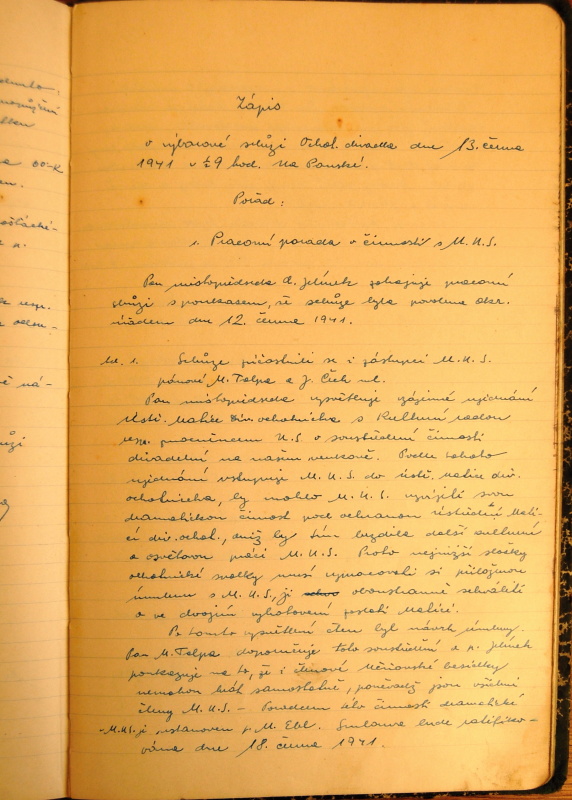 Zápis
o výborové schůzi Ochot. divadla dne 13. června
1941 v ½9 hod. Na Panské.
Pořad:
1. Pracovní porada o činnosti s M.K.S.
Pan místopředseda A. Jelínek zahajuje pracovní
schůzi s poukazem, že schůze byla povolena okr.
úřadem dne 12. června 1941.
Ad. 1. Schůze přiastnili se i zástupci M.K.S.
pánové M. Talpa a J. Čech ml.
Pan místopředseda vysvětluje vzájemné ujednání
Ústř. Matice div. ochotnictva s Kulturní radou
resp. N.S. o soustředění činnosti
divadelní na našem venkově. Podle tohoto
ujednání vstupuje M.K.S. do ústř. Matice div.
ochotnictva, by mohlo M.K.S. vyvíjeti svou
dramatickou činnost pod ochranou ústřední Mati-
ce div. ochot., aniž by tím brzdila další kulturní
a osvětovou práci M.K.S. Proto nejnižší složky
ochotnické svazky musí vypracovati si příslušnou
úmluvu s M.K.S., ji oboustranně schváliti
a ve dvojím vyhotovení zaslati Matici.
Po tomto vysvětlení čten byl návrh úmluvy.
Pan M. Talpa doporučuje toto soustředění a p. Jelínek
poukazuje na to, že i členové Měšťanské besedy
nemohou hrát samostatně, poněvadž jsou všichni
členy M.K.S. – Povoděm této činnosti dramatické
M.K.S. je ustanoven p. M. Ebl. Smlouva bude ratifiko-
vána dne 18. června 1941.